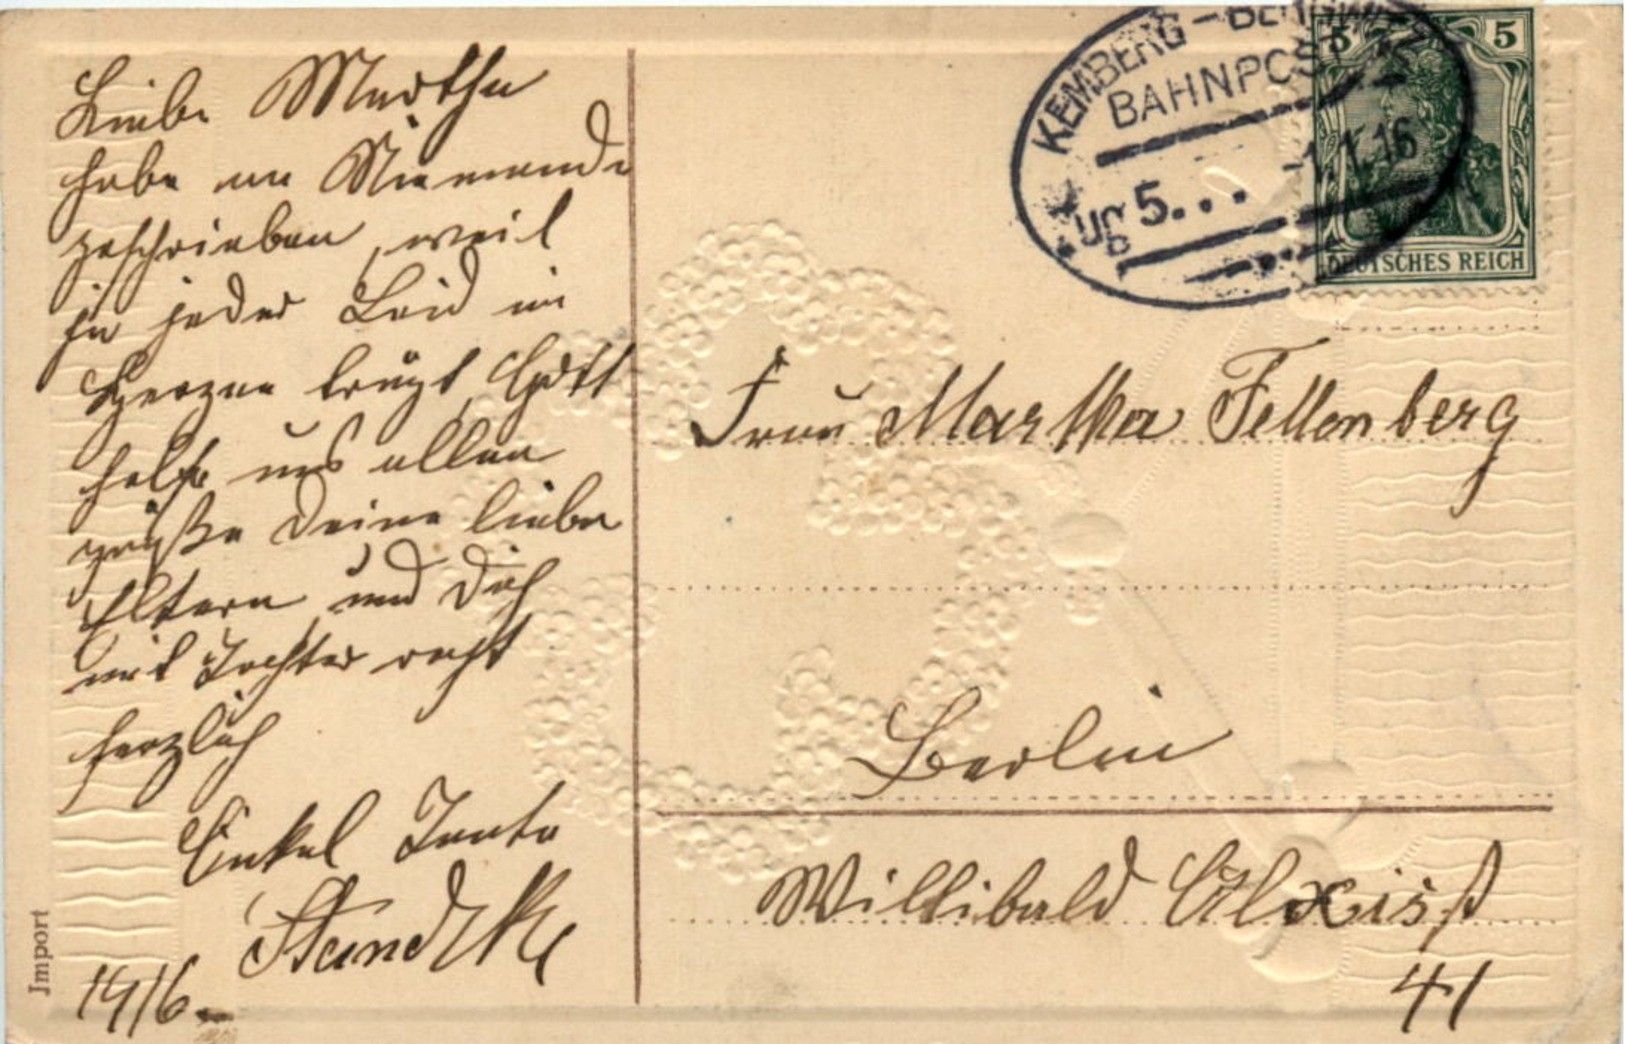 Liebe Martha
habe an Niemande
geschrieben, weil
ja jeder Leid im
Herzen trägt, Gott
helfe uns allen
grüße Deine lieben
Eltern und Dich
mit Tochter recht
herzlich
Onkel Tante
1916
Import
KEMBERG - BERGWITZ
BAHNPOST
ZUG 5... -1.1.16
5 5
DEUTSCHES REICH
Frau Martha Fellenberg
Berlin
Willibald Alexisst
41